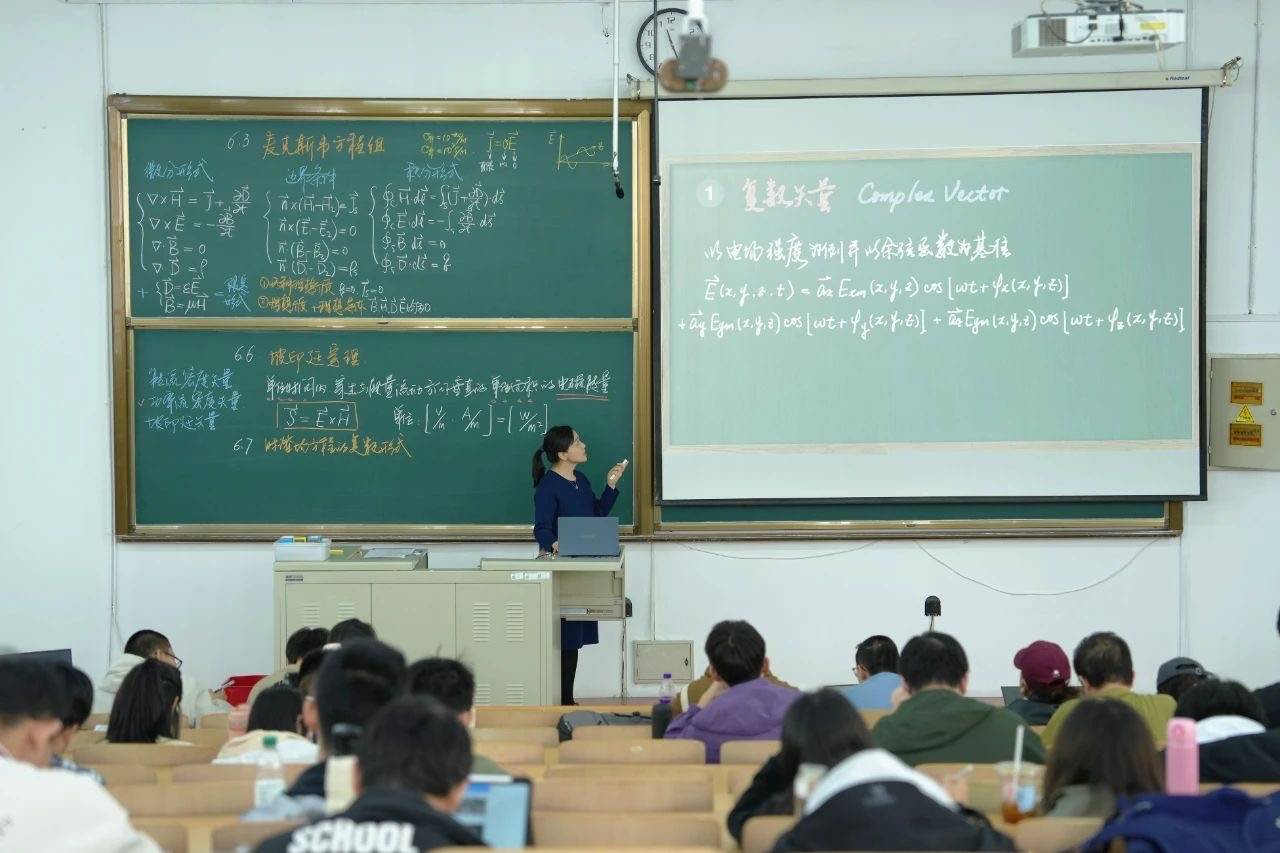 6.3 麦克斯韦方程组
微分形式 边界条件 积分形式
∇×H⃗ = J⃗ + ∂D⃗/∂t
∇×E⃗ = -∂B⃗/∂t
∇·B⃗ = 0
∇·D⃗ = ρ
n⃗×(H⃗₁-H⃗₂)=J⃗s
n⃗×(E⃗₁-E⃗₂)=0
n⃗·(B⃗₁-B⃗₂)=0
n⃗·(D⃗₁-D⃗₂)=ρs
∮c H⃗·dl⃗ = ∫s(J⃗+∂D⃗/∂t)·ds⃗
∮c E⃗·dl⃗ = -∫s ∂B⃗/∂t·ds⃗
∮s B⃗·ds⃗ = 0
∮s D⃗·ds⃗ = q
J⃗=σE⃗
+ D⃗=εE⃗
B⃗=μH⃗
6.6 坡印廷定理
能流密度矢量
功率流密度矢量
坡印廷矢量
单位时间内 穿过与能量流动方向垂直的 单位面积的电磁能量
S⃗ = E⃗×H⃗
单位: [V/m · A/m] = [W/m²]
6.7 时谐场方程的复数形式
1 复数矢量 Complex Vector
以电场强度为例并以余弦函数为基准
E⃗(x,y,z,t) = a⃗x Exm(x,y,z) cos[ωt+φx(x,y,z)]
+ a⃗y Eym(x,y,z) cos[ωt+φy(x,y,z)] + a⃗z Ezm(x,y,z) cos[ωt+φz(x,y,z)]
SCHOOL